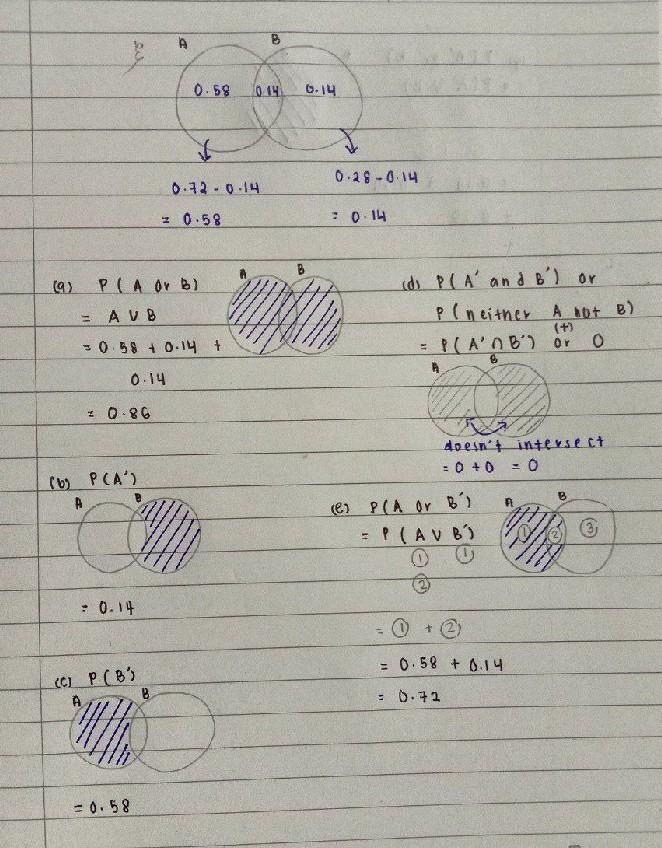 ξ
A B
0.58 0.14 0.14
0.72 - 0.14
= 0.58
0.28 - 0.14
= 0.14
(a) P ( A or B )
= A ∪ B
= 0.58 + 0.14 +
0.14
= 0.86
A B
(b) P(A')
A B
= 0.14
(c) P(B')
A B
= 0.58
(d) P(A' and B') or
P(neither A not B)
(+)
= P(A' ∩ B') or 0
A B
doesn't intersect
= 0 + 0 = 0
(e) P(A or B')
= P ( A ∪ B')
① ①
②
A B
① ② ③
= ① + ②
= 0.58 + 0.14
= 0.72